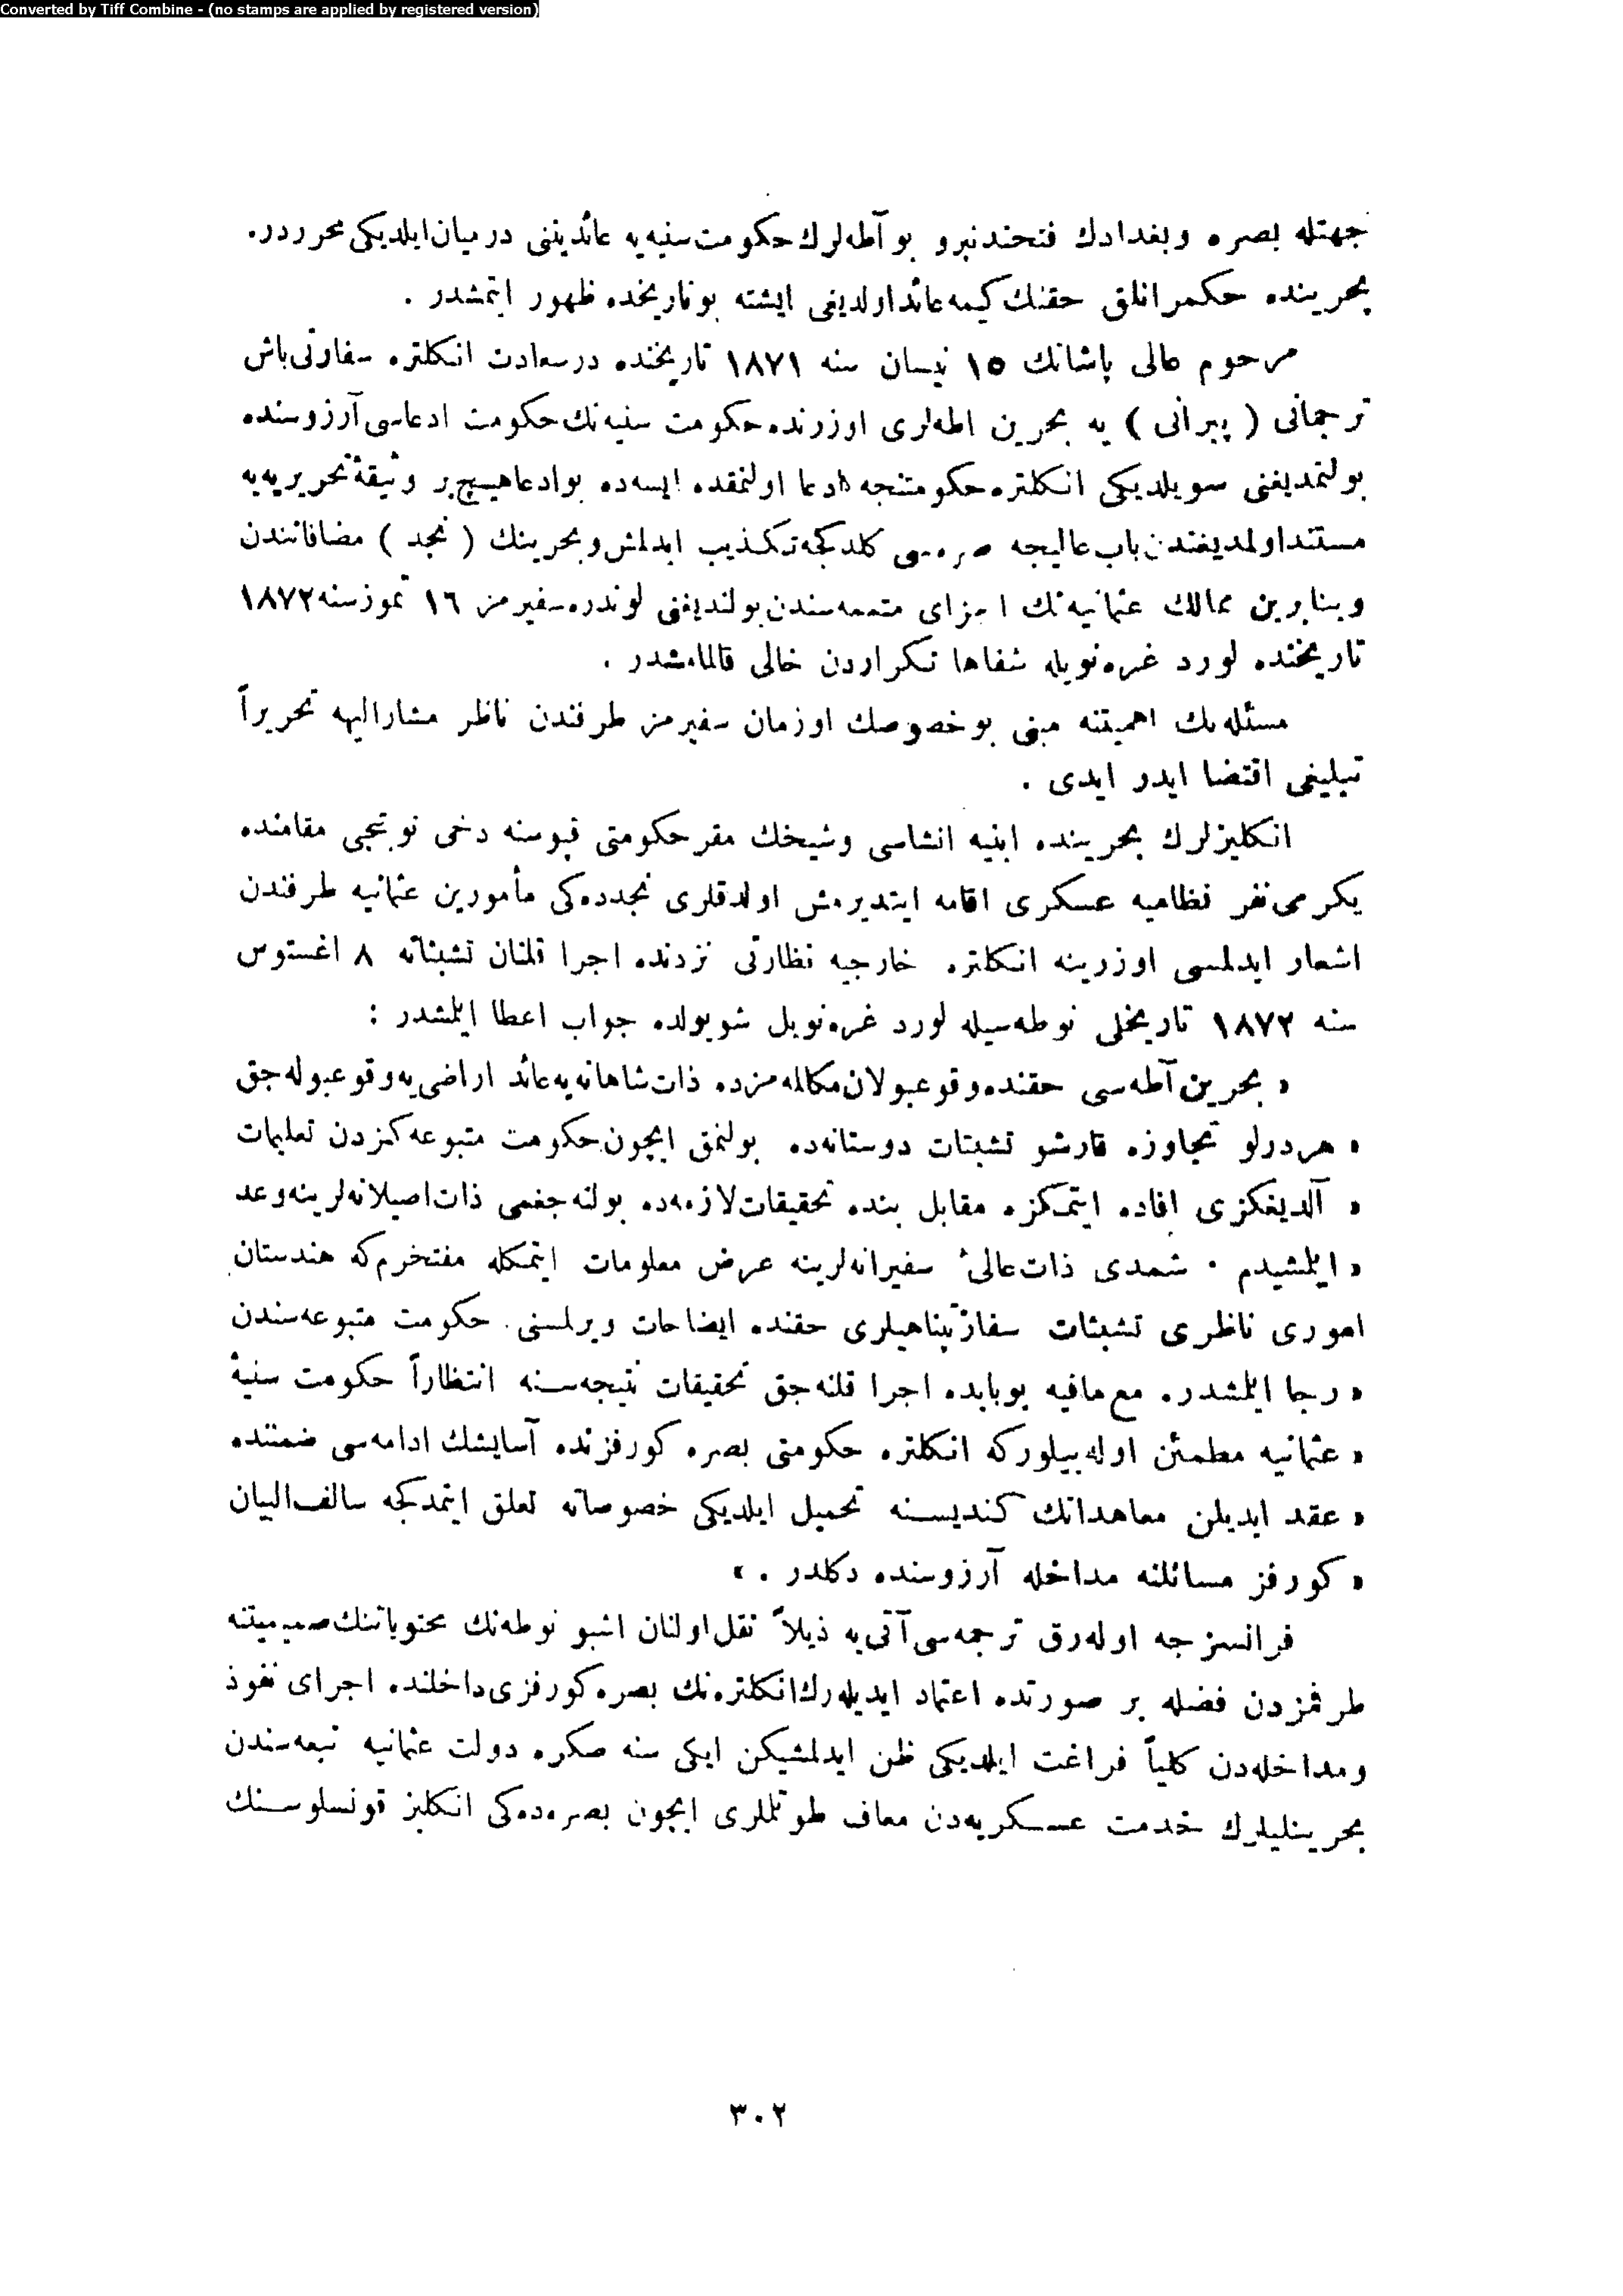 Converted by Tiff Combine - (no stamps are applied by registered version)
جهتله بصره وبغدادك فتحندنبرو بو آطه‌لرك حكومت سنيه‌يه عائديتنى درميان ايلديكى محرردر.
بحرينده حكمرانلق حقنك كيمه عائد اولديغى ايشته بو تاريخده ظهور ايتمشدر .
مرحوم عالى پاشانك ١٥ نيسان سنه ١٨٧١ تاريخنده درسعادت انكلتره سفارتى باش
ترجمانى ( پيزانى ) يه بحرين اطه‌لرى اوزرنده حكومت سنيه‌نك حكومت ادعاسى آرزوسنده
بولنمديغنى سويلديكى انكلتره حكومتنجه ادعا اولنمقده ايسه‌ده بو ادعا هيچ بر وثيقهٔ تحريريه‌يه
مستند اولمديغندن باب عاليجه صره‌سى كلدكجه تكذيب ايدلمش وبحرينك ( نجد ) مضافاتندن
وبنابرين ممالك عثمانيه‌نك اجزاى متممه‌سندن بولنديغنى لوندره سفيرمز ١٦ تموز سنه ١٨٧٢
تاريخنده لورد غره‌نويله شفاها تكراردن خالى قالمامشدر .
مسئله‌نك اهميتنه مبنى بو خصوصك اوزمان سفيرمز طرفندن ناظر مشاراليهه تحريراً
تبليغى اقتضا ايدر ايدى .
انكليزلرك بحرينده ابنيه انشاسى وشيخك مقر حكومتى قپوسنه دخى نوبتجى مقامنده
يكرمى نفر نظاميه عسكرى اقامه ايتديرمش اولدقلرى نجدده‌كى مأمورين عثمانيه طرفندن
اشعار ايدلمسى اوزرينه انكلتره خارجيه نظارتى نزدنده اجرا قلنان تشبثاته ٨ اغستوس
سنه ١٨٧٢ تاريخلى نوطه‌سيله لورد غره‌نويل شويولده جواب اعطا ايلمشدر :
« بحرين آطه‌سى حقنده وقوعبولان مكالمه‌مزده ذات شاهانه‌يه عائد اراضى‌يه وقوعبوله‌جق
« هر درلو تجاوزه قارشو تشبثات دوستانه‌ده بولنمق ايچون حكومت متبوعه‌كزدن تعليمات
« آلديغكزى افاده ايتمكزه مقابل بنده تحقيقات لازمه‌ده بولنه‌جغمى ذات اصيلانه‌لرينه وعد
« ايلمشيدم . شمدى ذات عالئ سفيرانه‌لرينه عرض معلومات ايتمكله مفتخرم كه هندستان
امورى ناظرى تشبثات سفارتپناهيلرى حقنده ايضاحات ويرلمسنى حكومت متبوعه‌سندن
« رجا ايلمشدر. مع‌مافيه بوبابده اجرا قلنه‌جق تحقيقات نتيجه‌سنه انتظاراً حكومت سنيهٔ
« عثمانيه مطمئن اوله‌بيلوركه انكلتره حكومتى بصره كورفزنده آسايشك ادامه‌سى ضمننده
« عقد ايديلن معاهداتك كنديسنه تحميل ايلديكى خصوصاته تعلق ايتمدكجه سالف البيان
« كورفز مسائلنه مداخله آرزوسنده دكلدر . »
فرانسزجه اوله‌رق ترجمه‌سى آتى‌يه ذيلاً نقل اولنان اشبو نوطه‌نك محتوياتنك صميميتنه
طرفمزدن فضله بر صورتده اعتماد ايديله‌رك انكلتره‌نك بصره كورفزى داخلنده اجراى نفوذ
ومداخله‌دن كلياً فراغت ايلديكى ظن ايدلمشيكن ايكى سنه صكره دولت عثمانيه تبعه‌سندن
بحرينليلرك خدمت عسكريه‌دن معاف طوتلملرى ايچون بصره‌ده‌كى انكليز قونسلوسنك
٣٠٢